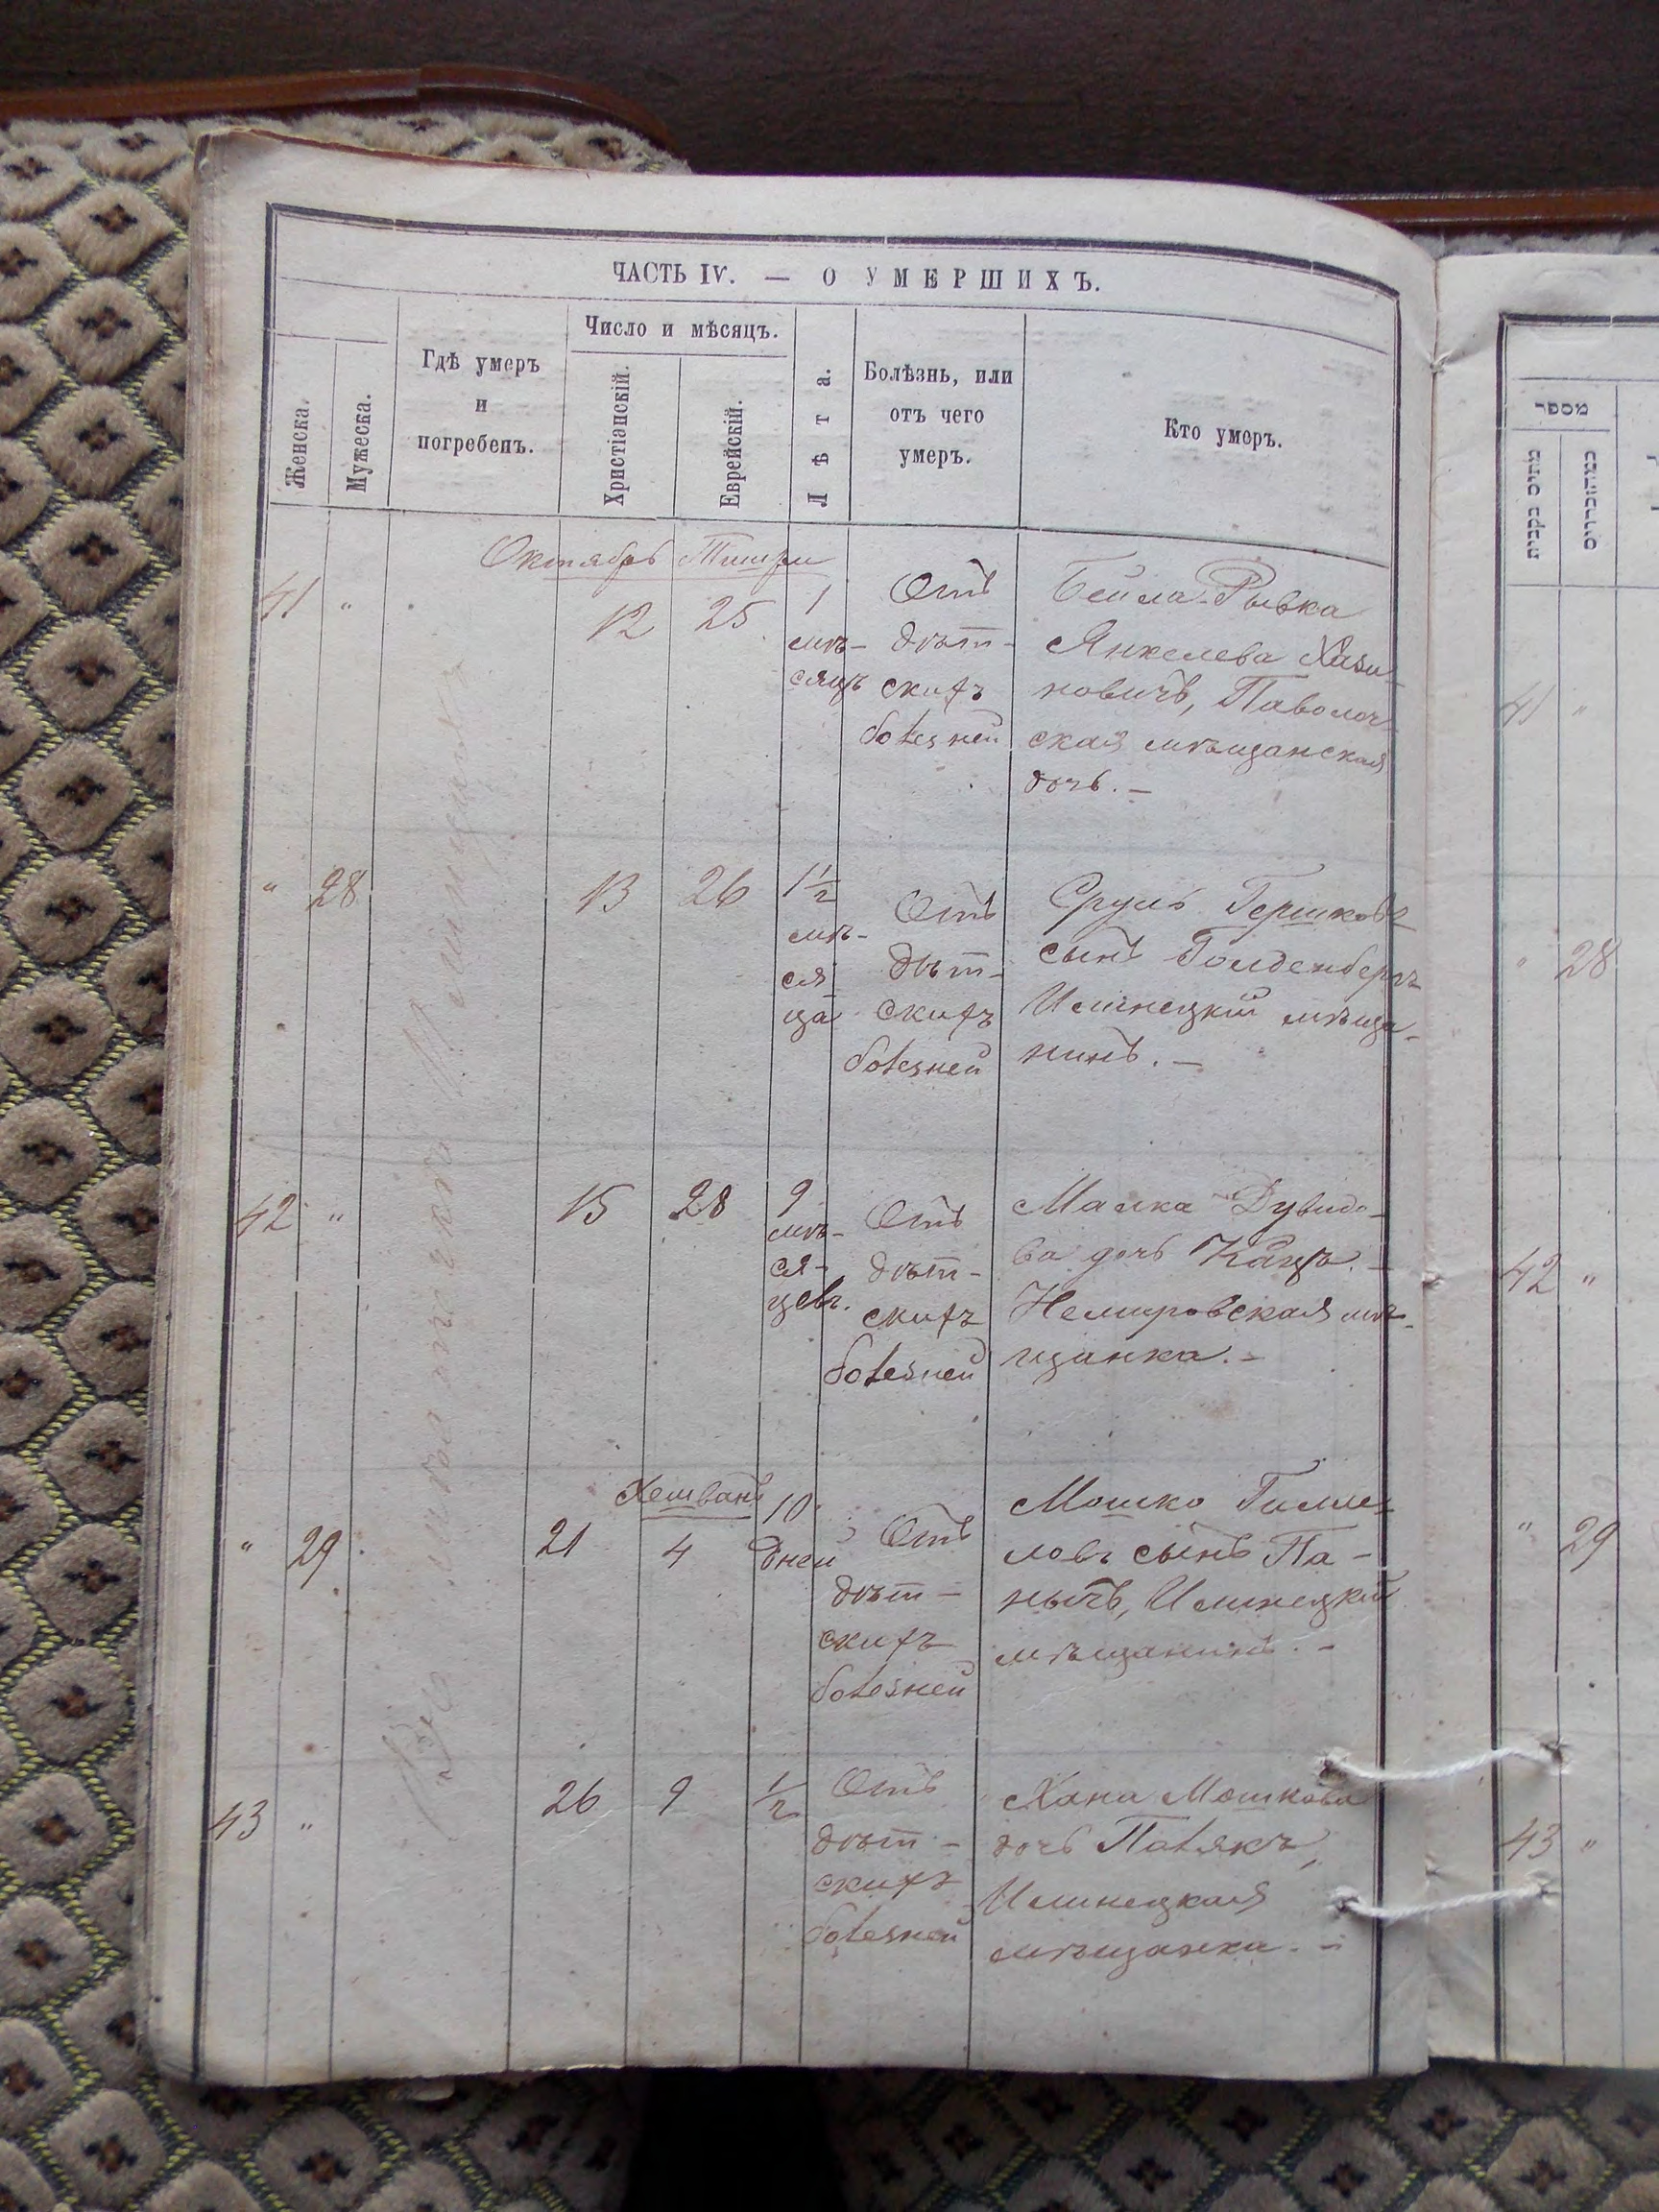 ЧАСТЬ IV. — О УМЕРШИХЪ.
Женска.
Мужеска.
Гдѣ умеръ
и
погребенъ.
Число и мѣсяцъ.
Христіанскій.
Еврейскій.
Лѣта.
Болѣзнь, или
отъ чего
умеръ.
Кто умеръ.
Въ мѣстечкѣ
Октябрь Тишри
41 " 12 25
1
мѣ-
сяцъ
Отъ
дѣт-
скихъ
болезней
Бейла-Рывка
Янкелева
новичъ, Паволоч-
ская мѣщанская
дочь. —
" 28 13 26
1½
мѣ-
ся
ца
Отъ
дѣт-
скихъ
болезней
Сруль Гершковъ
сынъ Голденбергъ
Илинецкій мѣща-
нинъ. —
42 " 15 28
9
мѣ-
ся-
цевъ.
Отъ
дѣт-
скихъ
болезней
Малка Дувидо-
ва дочь Кацъ. —
Немировская мѣ-
щанка. —
Хешванъ
" 29 21 4
10
дней
Отъ
дѣт-
скихъ
болезней
Мошко Гилле-
ловъ сынъ Па-
нычъ, Илинецкій
мѣщанинъ. —
43 " 26 9 ½
Отъ
дѣт-
скихъ
болезней
Хана Мошкова
дочь Полякъ,
Илинецкая
мѣщанка. —
מספר
41 "
" 28
42 "
" 29
43 "